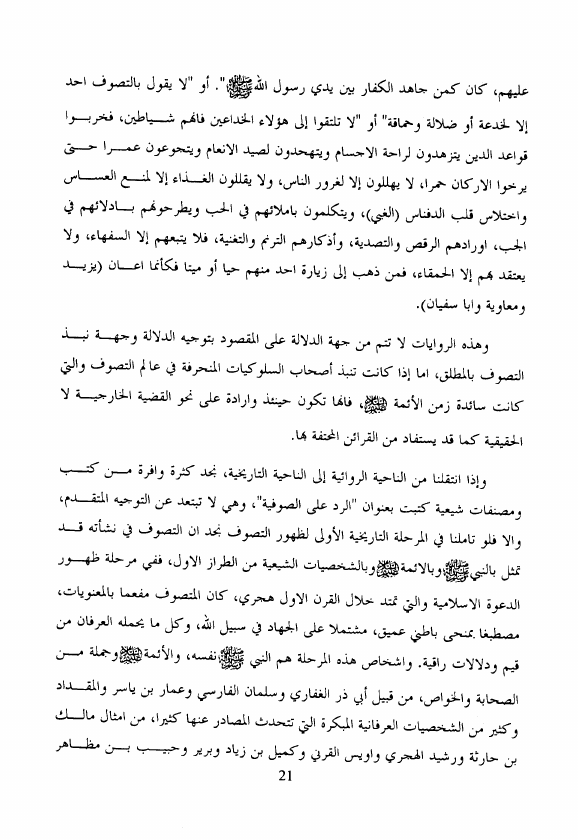 عليهم، كان كمن جاهد الكفار بين يدي رسول اللهﷺ". أو "لا يقول بالتصوف احد
إلا لخدعة أو ضلالة وحماقة" أو "لا تلتقوا إلى هؤلاء الخداعين فانهم شـــياطين، فخربـــوا
قواعد الدين يتزهدون لراحة الاجسام ويتهجدون لصيد الانعام ويتجوعون عمـــرا حـــتى
يرخوا الاركان حمرا، لا يهللون إلا لغرور الناس، ولا يقللون الغـــذاء إلا لمنـــع العســـاس
واختلاس قلب الدفناس (الغبي)، ويتكلمون باملائهم في الحب ويطرحونهم بـــادلائهم في
الجب، اورادهم الرقص والتصدية، وأذكارهم الترنم والتغنية، فلا يتبعهم إلا السفهاء، ولا
يعتقد بهم إلا الحمقاء، فمن ذهب إلى زيارة احد منهم حيا أو ميتا فكأنما اعـــان (يزيـــد
ومعاوية وابا سفيان).
وهذه الروايات لا تتم من جهة الدلالة على المقصود بتوجيه الدلالة وجهـــة نبـــذ
التصوف بالمطلق، اما إذا كانت تنبذ أصحاب السلوكيات المنحرفة في عالم التصوف والتي
كانت سائدة زمن الأئمة، فانها تكون حينئذ وارادة على نحو القضية الخارجيـــة لا
الحقيقية كما قد يستفاد من القرائن المحتفة بها.
وإذا انتقلنا من الناحية الروائية إلى الناحية التاريخية، نجد كثرة وافرة مـــن كتـــب
ومصنفات شيعية كتبت بعنوان "الرد على الصوفية"، وهي لا تبتعد عن التوجيه المتقـــدم،
والا فلو تاملنا في المرحلة التاريخية الأولى لظهور التصوف نجد ان التصوف في نشأته قـــد
تمثل بالنبيﷺ وبالائمة وبالشخصيات الشيعية من الطراز الاول، ففي مرحلة ظهـــور
الدعوة الاسلامية والتي تمتد خلال القرن الاول هجري، كان المتصوف مفعما بالمعنويات،
مصطبغا بمنحى باطني عميق، مشتملا على الجهاد في سبيل الله، وكل ما يحمله العرفان من
قيم ودلالات راقية. واشخاص هذه المرحلة هم النبي ﷺ نفسه، والأئمة وجملة مـــن
الصحابة والخواص، من قبيل أبي ذر الغفاري وسلمان الفارسي وعمار بن ياسر والمقـــداد
وكثير من الشخصيات العرفانية المبكرة التي تتحدث المصادر عنها كثيرا، من امثال مالـــك
بن حارثة ورشيد الهجري واويس القرني وكميل بن زياد وبرير وحبيـــب بـــن مظـــاهر
21